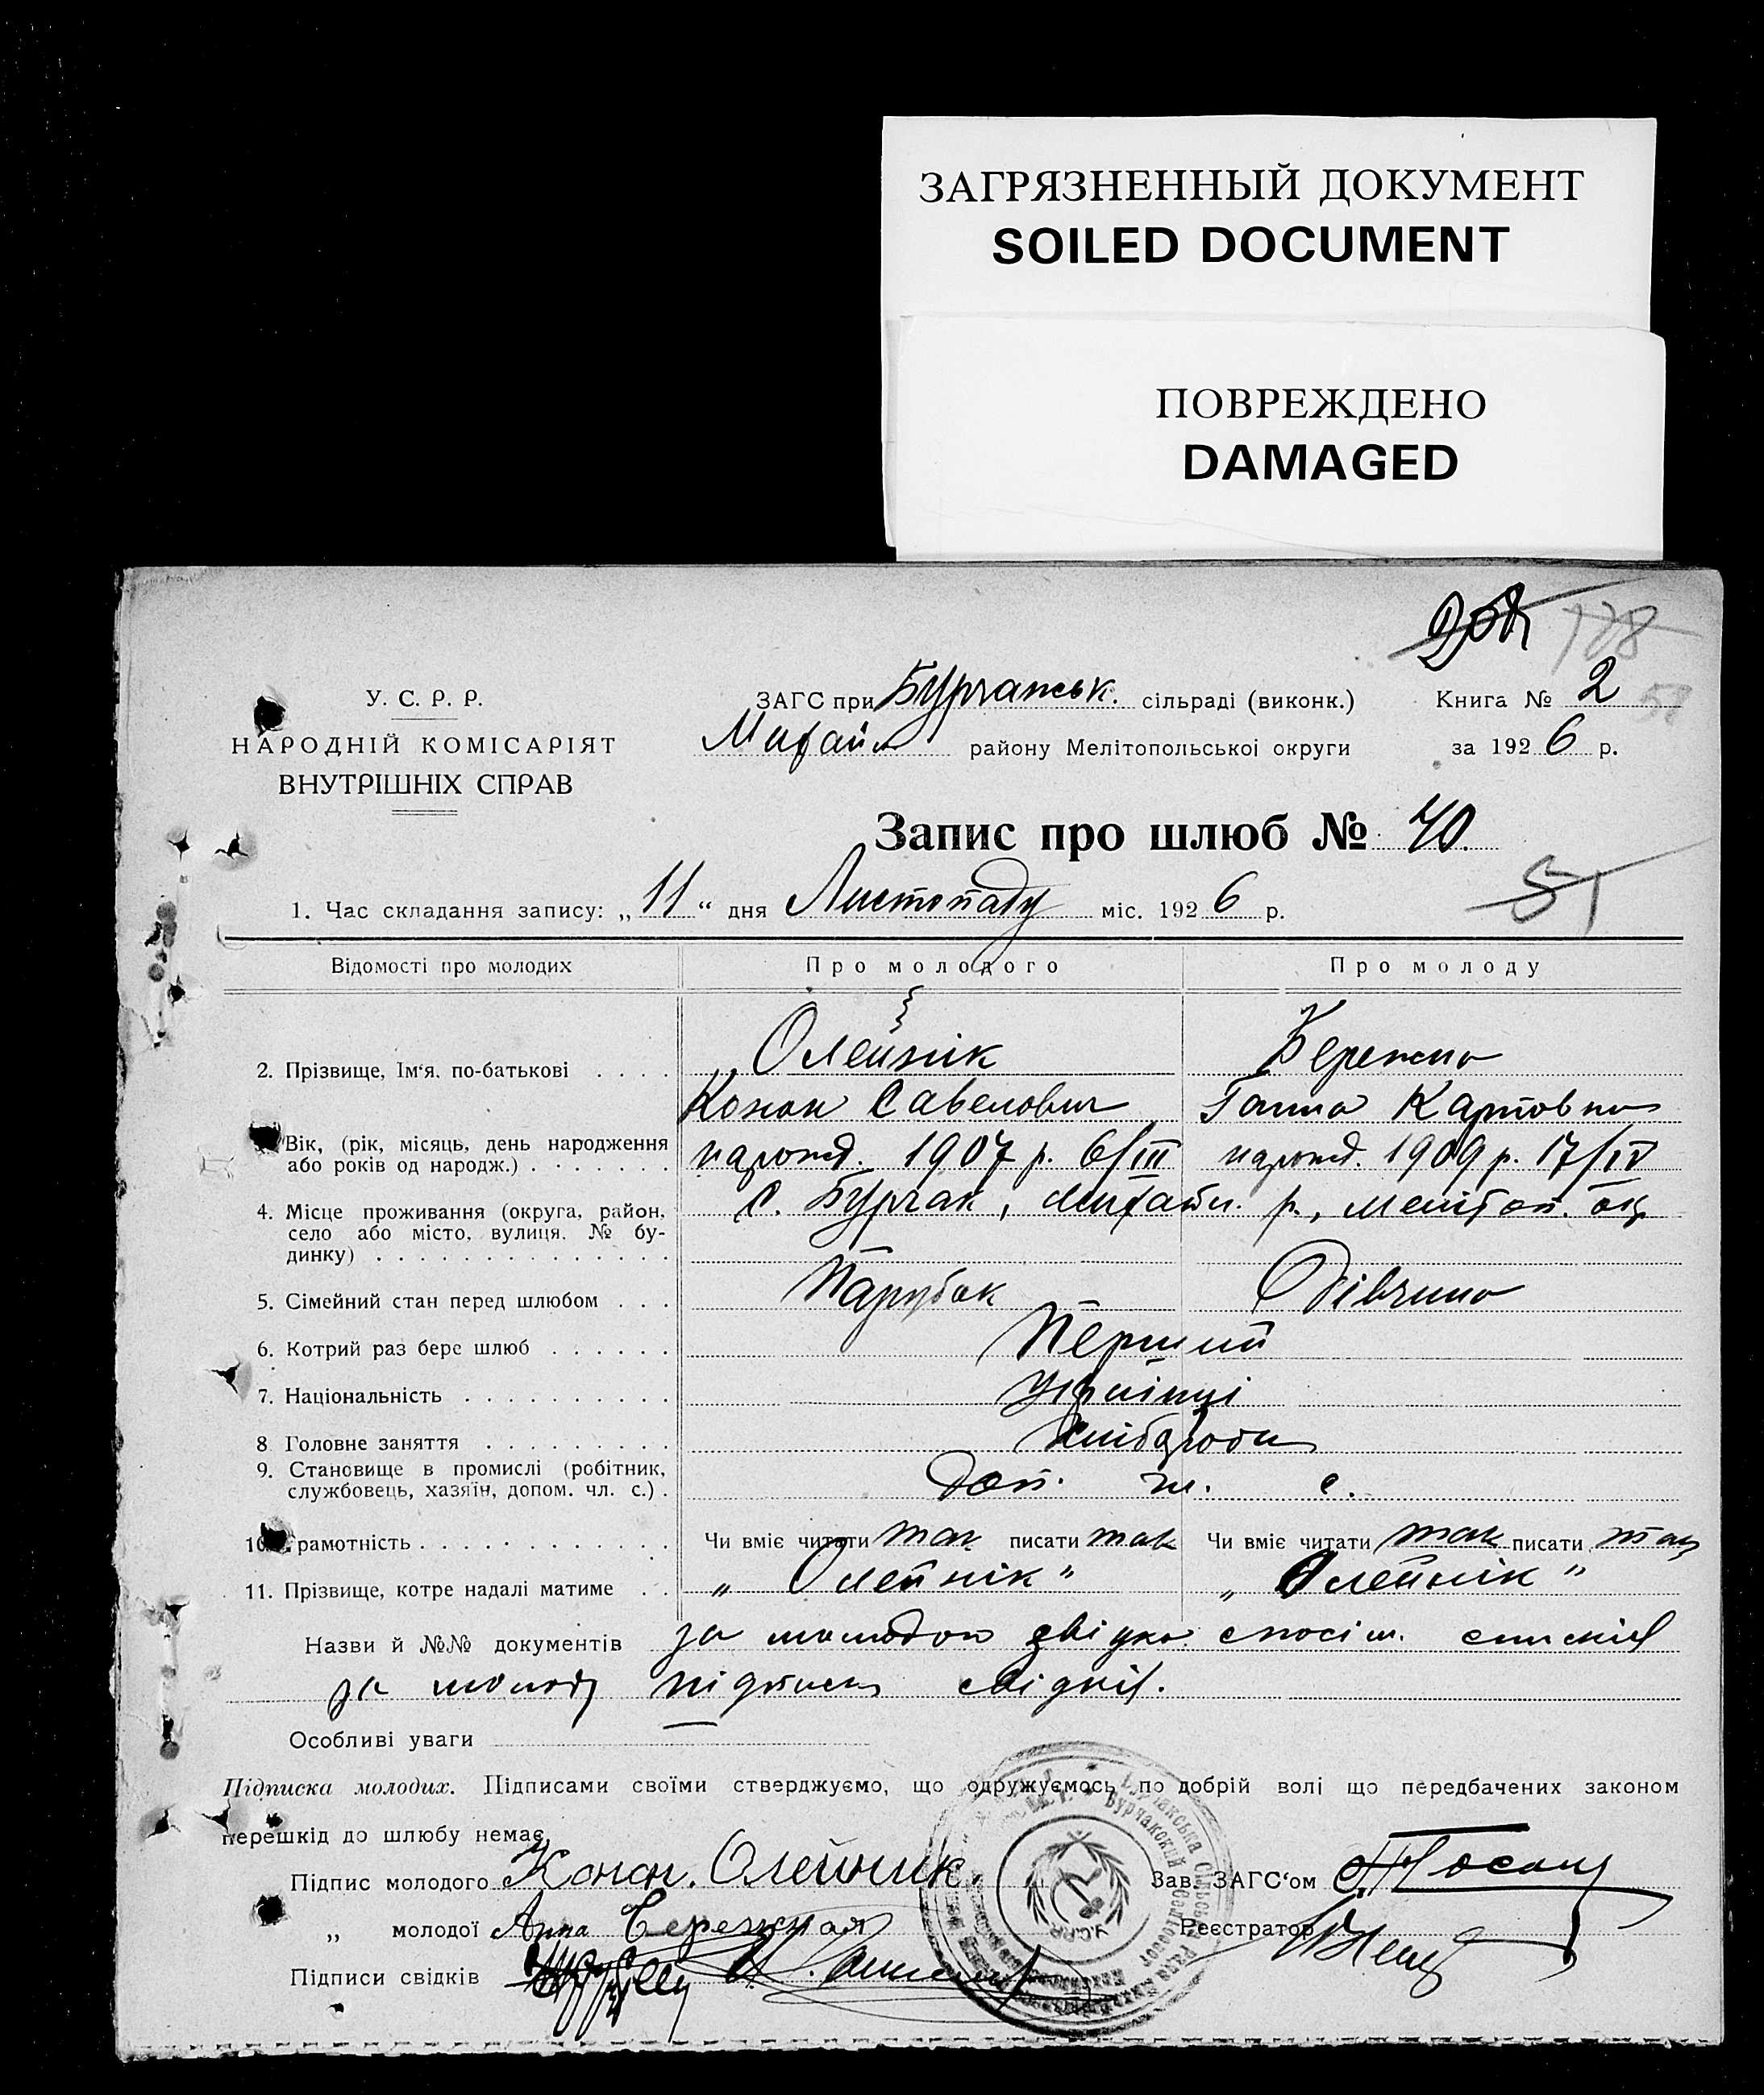 ЗАГРЯЗНЕННЫЙ ДОКУМЕНТ
SOILED DOCUMENT
ПОВРЕЖДЕНО
DAMAGED
178
У. С. Р. Р.
НАРОДНІЙ КОМІСАРІЯТ
ВНУТРІШНІХ СПРАВ
ЗАГС при Бурчатськ. сільраді (виконк.) Книга № 2
Михайл району Мелітопольської округи за 1926 р.
Запис про шлюб № 40.
51
1. Час складання запису: „11“ дня Листопаду міс. 1926 р.
Відомості про молодих Про молодого Про молоду
2. Прізвище, Ім'я, по-батькові . . . . Олейнік Бережна
Конон Савелович Ганна Карповна
Вік, (рік, місяць, день народження або років од народж.) . . . . . . . народ. 1907 р. 6/III народ. 1909 р. 17/IV
4. Місце проживання (округа, район, село або місто, вулиця, № будинку) . . . . . . . . . . . . . с. Бурчак, Михайл. р., Мелітоп. окр
5. Сімейний стан перед шлюбом . . . Парубок Дівчина
6. Котрий раз бере шлюб . . . . . . Перший
7. Національність . . . . . . . . . . Українці
8 Головне заняття . . . . . . . . . Хлібороби
9. Становище в промислі (робітник, службовець, хазяїн, допом. чл. с.) . доп. чл. с.
10. Грамотність . . . . . . . . . . . . Чи вміє читати так писати так Чи вміє читати так писати так
11. Прізвище, котре надалі матиме . . „Олейнік" „Олейнік"
Назви й №№ документів за молодого посім. списків
за молоду підписка свідків.
Особливі уваги
Підписка молодих. Підписами своїми стверджуємо, що одружуємось по добрій волі що передбачених законом
перешкід до шлюбу немає,
Підпис молодого Конон. Олейник. Зав. ЗАГС'ом
„ молодої Анна Бережная Реєстратор
Підписи свідків
УСРР